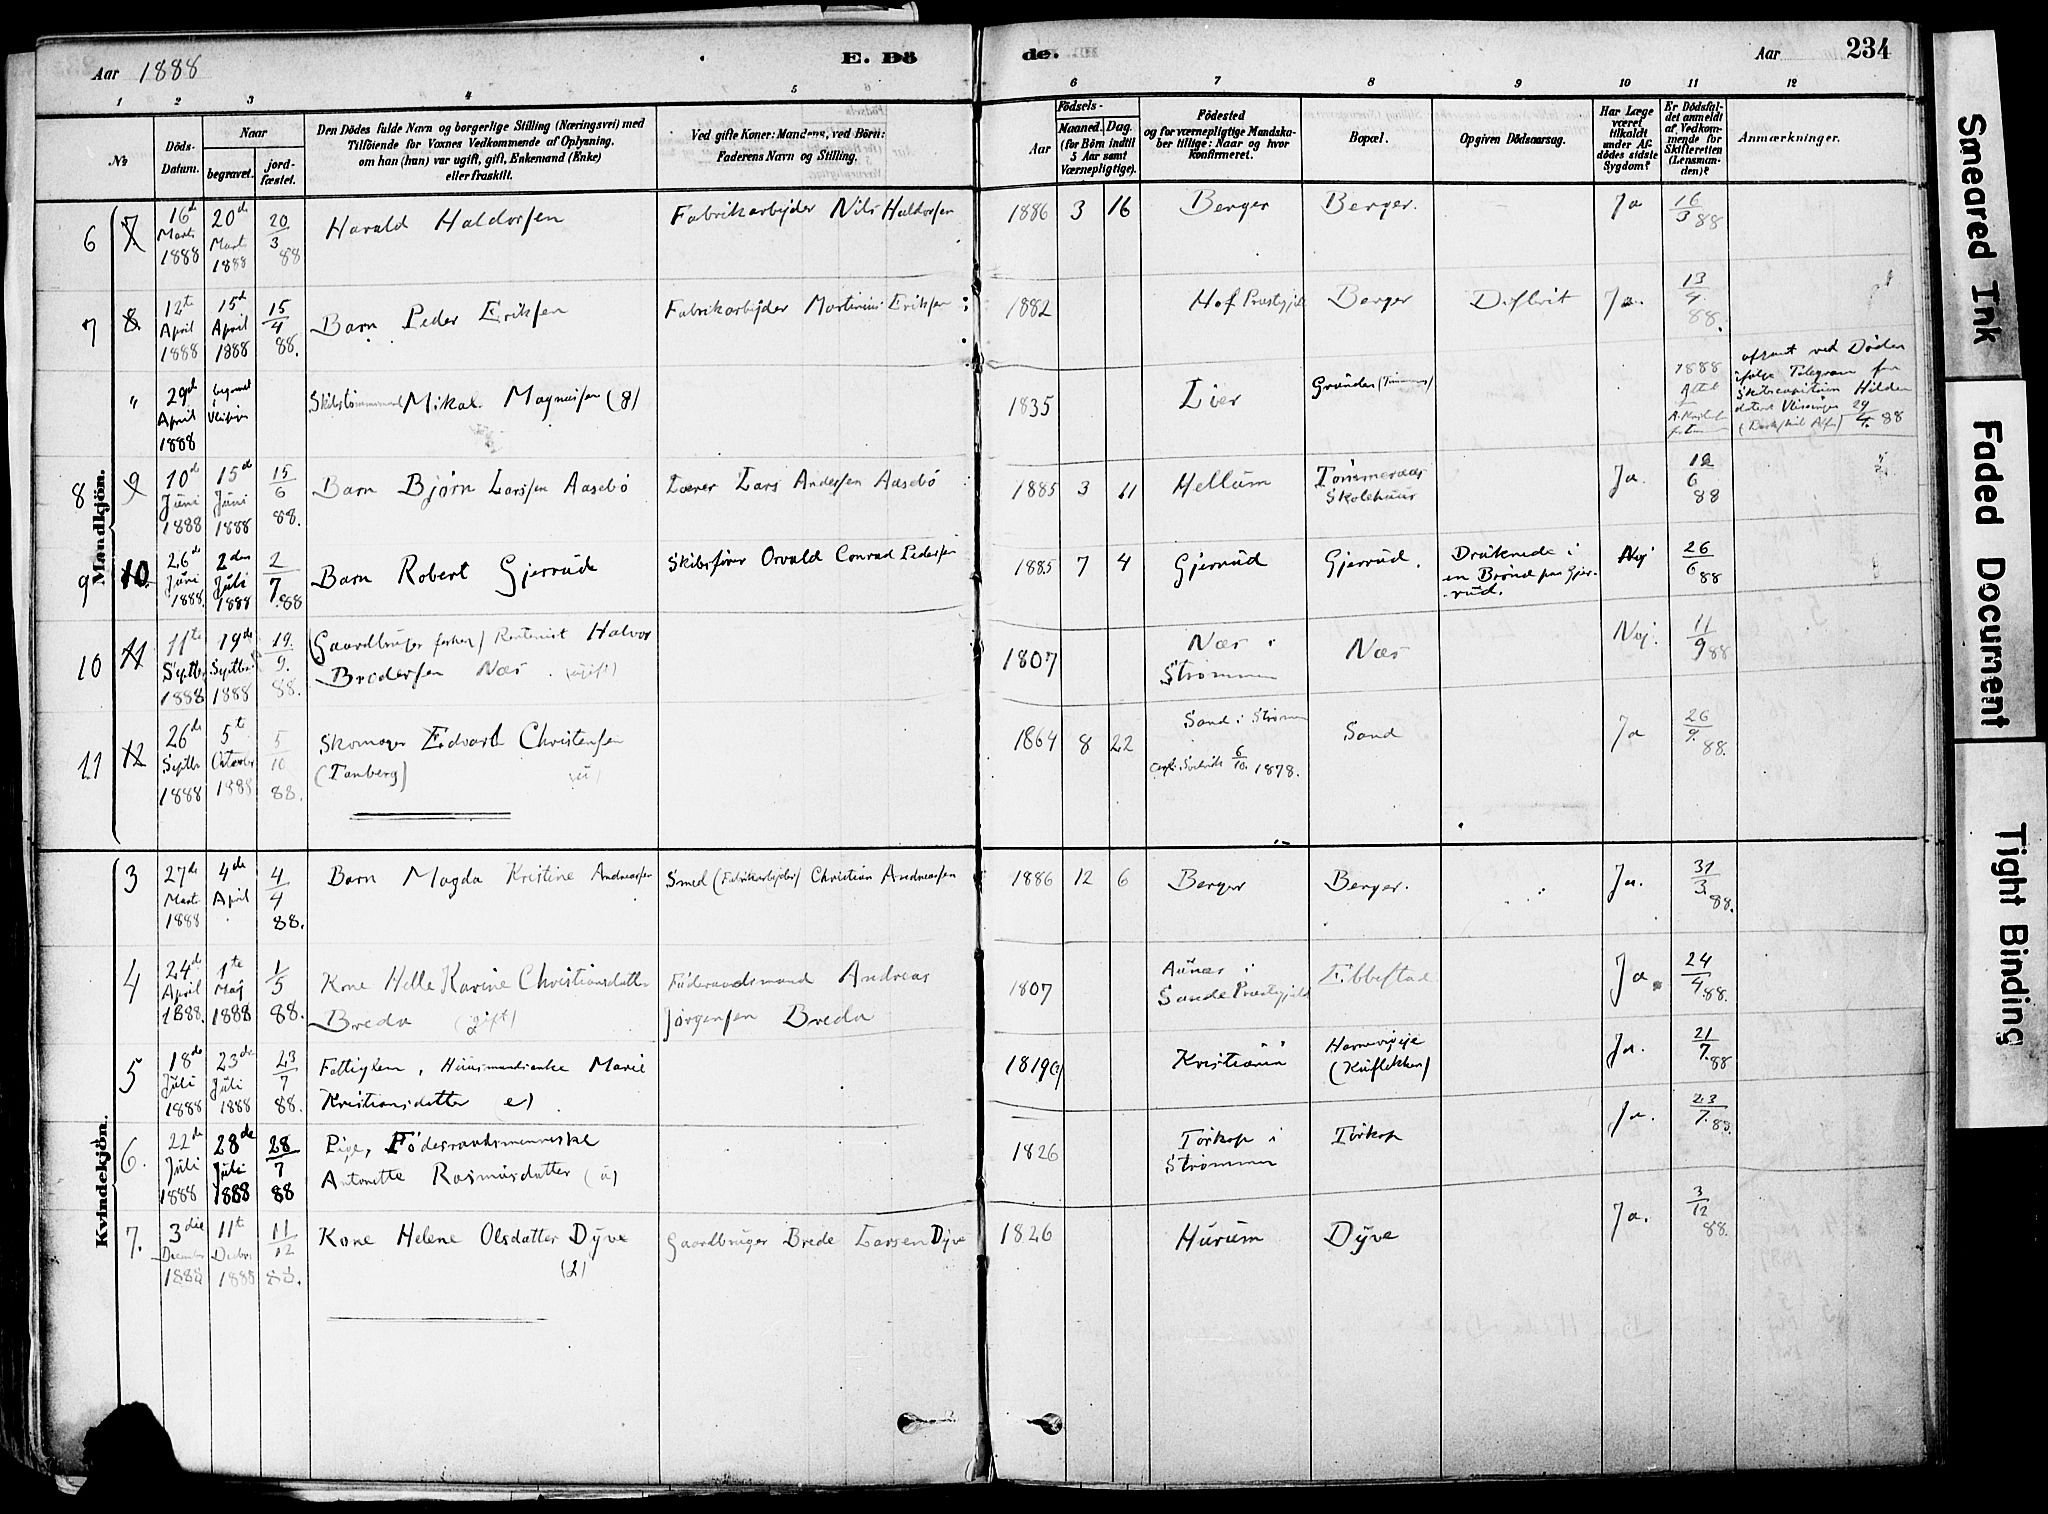 Aar 1888
E. Dö
de.
Aar
234
1 2 3 4 5
6 7 8 9 10 11 12
No
Döds-Datum.
Naar
begravet.
jord-fæstet.
Den Dödes fulde Navn og borgerlige Stilling (Næringsvei) med
Tilföiende for Voxnes Vedkommende af Oplysning,
om han (hun) var ugift, gift, Enkemand (Enke)
eller fraskilt.
Ved gifte Koner: Mandens, ved Börn:
Faderens Navn og Stilling.
Födsels-
Aar
Maaned. Dag.
(for Börn indtil
5 Aar samt
Værnepligtige).
Födested
og for værnepligtige Mandska-
ber tillige: Naar og hvor
konfirmeret.
Bopæl.
Opgiven Dödsaarsag.
Har Læge
været
tilkaldt
under Af-
dödes sidste
Sygdom?
Er Dödsfal-
det anmeldt
af Vedkom-
mende for
Skifteretten
(Lensman-
den)?
Anmærkninger.
Mandkjön.
6 7 16de Marts 1888 20de Marts 1888 20/3 88 Harald Haldorsen Fabrikarbejder Nils Haldorsen 1886 3 16 Berger Berger. Ja 16/3 88
7 8 12te April 1888 15de April 1888 15/4 88. Barn Peder Eriksen Fabrikarbejder Martinius Eriksen 1882 Hof Præstgjeld Berger Difterit Ja. 13/4 88.
" 29de April 1888 begravet Skibstømmermand Mikal Magnussen (g) 1835 Lier 1888
ved Døden
ifølge Telegram fra
Skibscapitain Hilden
dateret Vlissingen 29/4 88
8 9 10de Juni 1888 15de Juni 1888 15/6 88. Barn Bjørn Larssen Aasebö Lærer Lars Andersen Aasebö 1885 3 11 Hellum Tømmeraas Skolehuus Ja. 12/6 88
9 10. 26de Juni 1888. 2den Juli 1888 2/7 88 Barn Robert Gjerrud Skibsfører Osvald Conrad Pedersen 1885 7 4 Gjerrud Gjerrud. Druknede i en Brönd paa Gjer-rud. Nej 26/6 88
10 11 11te Septbr 1888 19de Septbr. 1888 19/9. 88. Gaardbruger forhen) Rentenist Halvor
Brodersen Næs (ugift) 1807 Næs i Strømmen Næs Nej. 11/9 88
11 12 26de Septbr 1888 5te October 1888 5/10 88. Skomager Edvart Christensen
(Tanberg) (u) 1864 8 22 Sand i Strømm
Svelvik 6/10. 1878. Sand Ja 26/9. 88.
Kvindekjön.
3 27de Marts 1888 4de April 4/4 88. Barn Magda Kristine Andreassen Smed (Fabrikarbejder) Christian Andreassen 1886 12 6 Berger Berger. Ja. 31/3. 88.
4 24de April 1888. 1te Maj 1888 1/5 88. Kone Helle Karine Christiansdatter
Breda (gift) Föderaadsmand Andreas
Jørgensen Breda 1807 Sande Præstegjeld Ebbestad Ja. 24/4 88.
5 18de Juli 1888 23de Juli 1888 23/7 88. Fattiglem, Huusmandsenke Marie
Kristiansdatter (e) 1819 Kristiania Ja. 21/7. 88
6. 22de Juli 1888 28de Juli 1888 28/7 88 Pige, Föderaadsmenneske
Antonette Rasmusdatter (u) 1826 Torkop i Strømmen Torkop Ja. 23/7. 88.
7. 3die December 1888 11te Decbr. 1888 11/12 88. Kone Helene Olsdatter Dyve
(g) Gaardbruger Brede Larsen Dyve 1826 Hurum Dyve Ja. 3/12 88.
Smeared Ink
Faded Document
Tight Binding